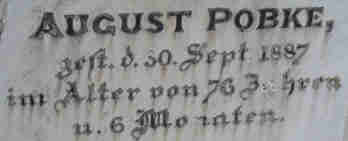 AUGUST POBKE,
gest. d. 30. Sept 1887
im Alter von 76 Jahren
u. 6 Monaten.